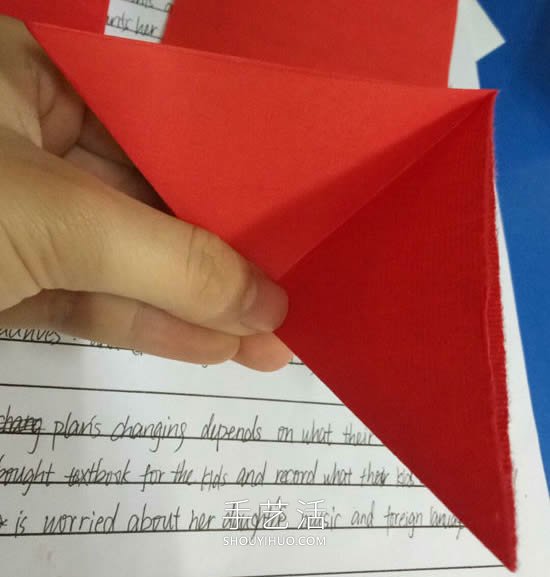 unts her
plan's changing depends on what their
bought textbook for the kids and record what their kids
is worried about her daughter music and foreign
手艺活
SHOUYIHUO.COM